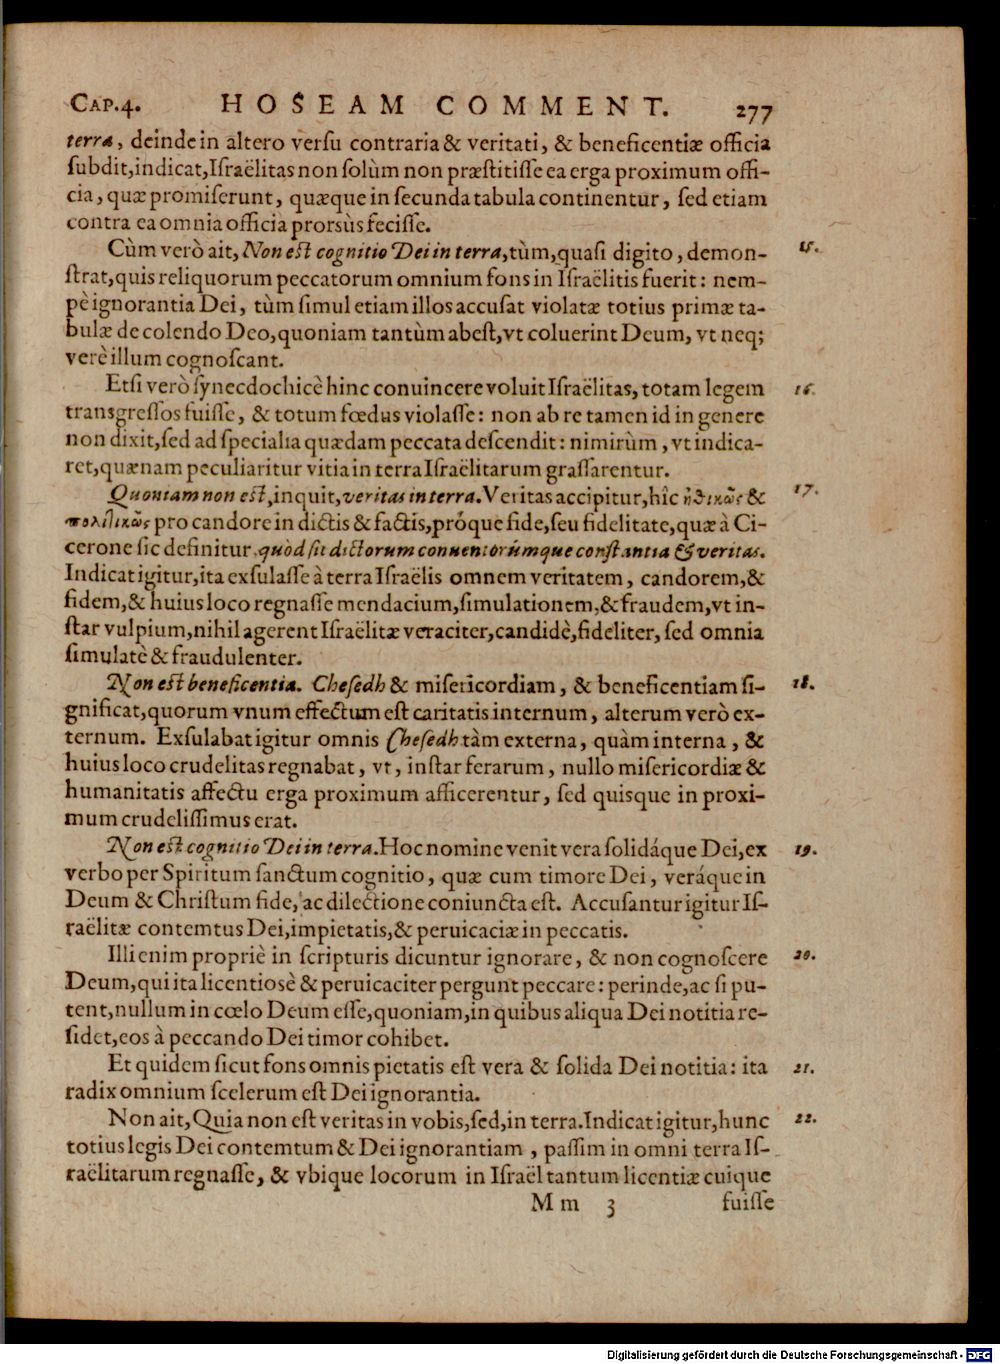 CAP.4. HOSEAM COMMENT. 277
terra, deinde in altero versu contraria & veritati, & beneficentiæ officia
subdit, indicat, Israëlitas non solùm non præstitisse ea erga proximum offi-
cia, quæ promiserunt, quæque in secunda tabula continentur, sed etiam
contra ea omnia officia prorsùs fecisse.
Cùm verò ait, Non est cognitio Dei in terra, tùm, quasi digito, demon- 15.
strat, quis reliquorum peccatorum omnium fons in Israëlitis fuerit: nem-
pè ignorantia Dei, tùm simul etiam illos accusat violatæ totius primæ ta-
bulæ de colendo Deo, quoniam tantùm abest, vt coluerint Deum, vt neq;
verè illum cognoscant.
Etsi verò synecdochicè hinc conuincere voluit Israëlitas, totam legem 16.
transgressos fuisse, & totum fœdus violasse: non ab re tamen id in genere
non dixit, sed ad specialia quædam peccata descendit: nimirùm, vt indica-
ret, quænam peculiaritur vitia in terra Israëlitarum grassarentur.
Quoniam non est, inquit, veritas in terra. Veritas accipitur, hîc ἠθικῶς & 17.
πολιτικῶς pro candore in dictis & factis, próque fide, seu fidelitate, quæ à Ci-
cerone sic definitur, quòd sit dictorum conuentorúmque constantia & veritas.
Indicat igitur, ita exsulasse à terra Israëlis omnem veritatem, candorem, &
fidem, & huius loco regnasse mendacium, simulationem, & fraudem, vt in-
star vulpium, nihil agerent Israëlitæ veraciter, candidè, fideliter, sed omnia
simulatè & fraudulenter.
Non est beneficentia. Chesedh & misericordiam, & beneficentiam si- 18.
gnificat, quorum vnum effectum est caritatis internum, alterum verò ex-
ternum. Exsulabat igitur omnis Chesedh tàm externa, quàm interna, &
huius loco crudelitas regnabat, vt, instar ferarum, nullo misericordiæ &
humanitatis affectu erga proximum afficerentur, sed quisque in proxi-
mum crudelissimus erat.
Non est cognitio Dei in terra. Hoc nomine venit vera solidáque Dei, ex 19.
verbo per Spiritum sanctum cognitio, quæ cum timore Dei, veráque in
Deum & Christum fide, ac dilectione coniuncta est. Accusantur igitur Is-
raëlitæ contemtus Dei, impietatis, & peruicaciæ in peccatis.
Illi enim propriè in scripturis dicuntur ignorare, & non cognoscere 20.
Deum, qui ita licentiosè & peruicaciter pergunt peccare: perinde, ac si pu-
tent, nullum in cœlo Deum esse, quoniam, in quibus aliqua Dei notitia re-
sidet, eos à peccando Dei timor cohibet.
Et quidem sicut fons omnis pietatis est vera & solida Dei notitia: ita 21.
radix omnium scelerum est Dei ignorantia.
Non ait, Quia non est veritas in vobis, sed, in terra. Indicat igitur, hunc 22.
totius legis Dei contemtum & Dei ignorantiam, passim in omni terra Is-
raëlitarum regnasse, & vbique locorum in Israël tantum licentiæ cuique
Mm 3 fuisse
Digitalisierung gefördert durch die Deutsche Forschungsgemeinschaft - DFG